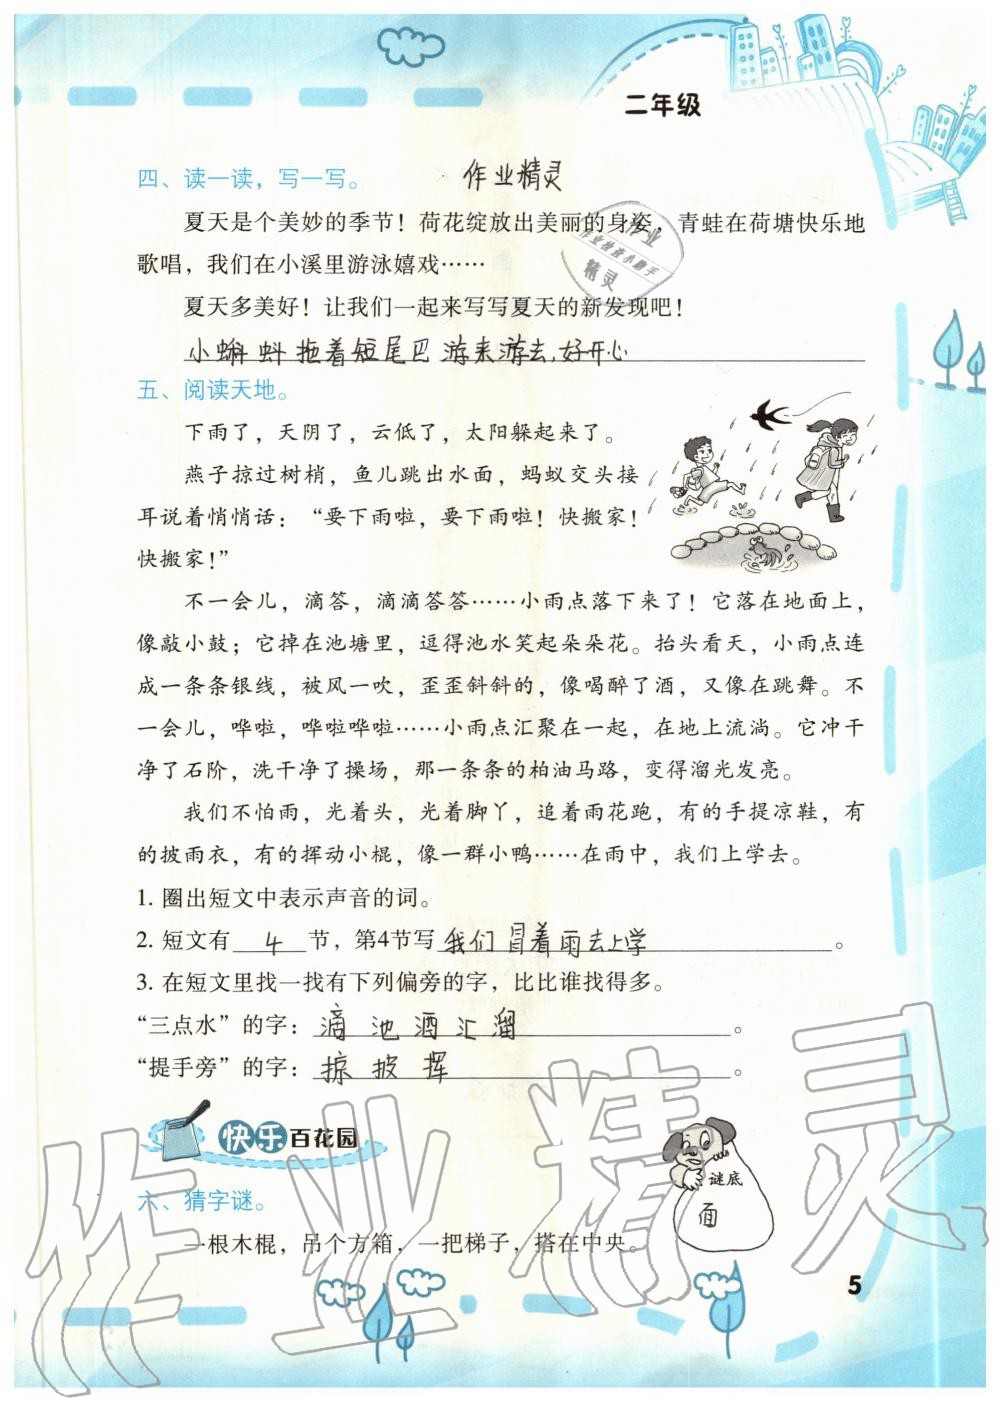 二年级
四、读一读，写一写。
作业精灵
夏天是个美妙的季节！荷花绽放出美丽的身姿，青蛙在荷塘快乐地
歌唱，我们在小溪里游泳嬉戏……
夏天多美好！让我们一起来写写夏天的新发现吧！
小蝌蚪拖着短尾巴游来游去,好开心
五、阅读天地。
下雨了，天阴了，云低了，太阳躲起来了。
燕子掠过树梢，鱼儿跳出水面，蚂蚁交头接
耳说着悄悄话：“要下雨啦，要下雨啦！快搬家！
快搬家！”
不一会儿，滴答，滴滴答答……小雨点落下来了！它落在地面上，
像敲小鼓；它掉在池塘里，逗得池水笑起朵朵花。抬头看天，小雨点连
成一条条银线，被风一吹，歪歪斜斜的，像喝醉了酒，又像在跳舞。不
一会儿，哗啦，哗啦哗啦……小雨点汇聚在一起，在地上流淌。它冲干
净了石阶，洗干净了操场，那一条条的柏油马路，变得溜光发亮。
我们不怕雨，光着头，光着脚丫，追着雨花跑，有的手提凉鞋，有
的披雨衣，有的挥动小棍，像一群小鸭……在雨中，我们上学去。
1. 圈出短文中表示声音的词。
2. 短文有 4 节，第4节写 我们冒着雨去上学 。
3. 在短文里找一找有下列偏旁的字，比比谁找得多。
“三点水”的字： 滴 池 酒 汇 溜 。
“提手旁”的字： 掠 披 挥 。
快乐百花园
六、猜字谜。
谜底
面
一根木棍，吊个方箱，一把梯子，搭在中央。
5
作业精灵